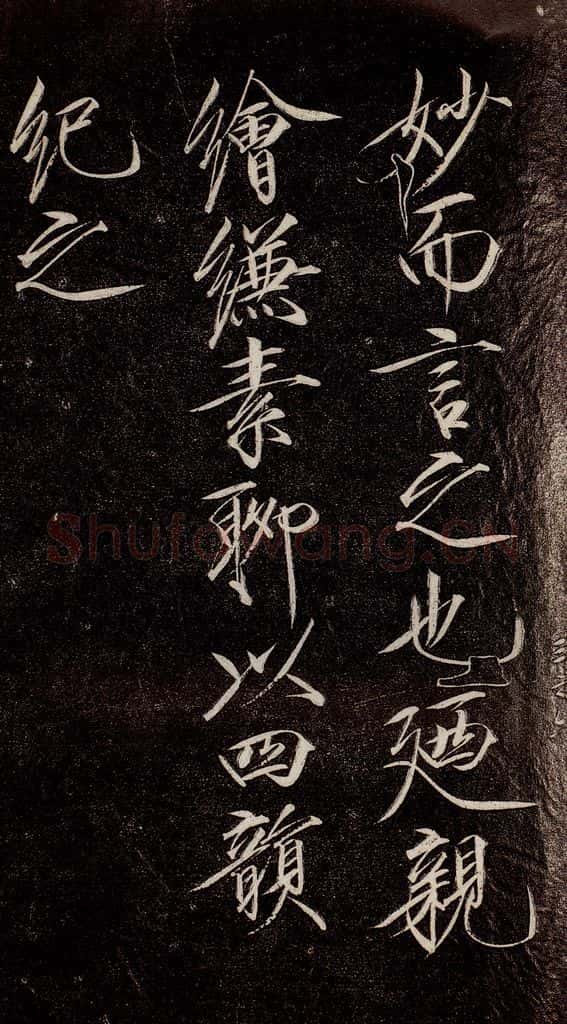 妙而言之也廼親
繪縑素聊以四韻
紀之
Shufawang.CN